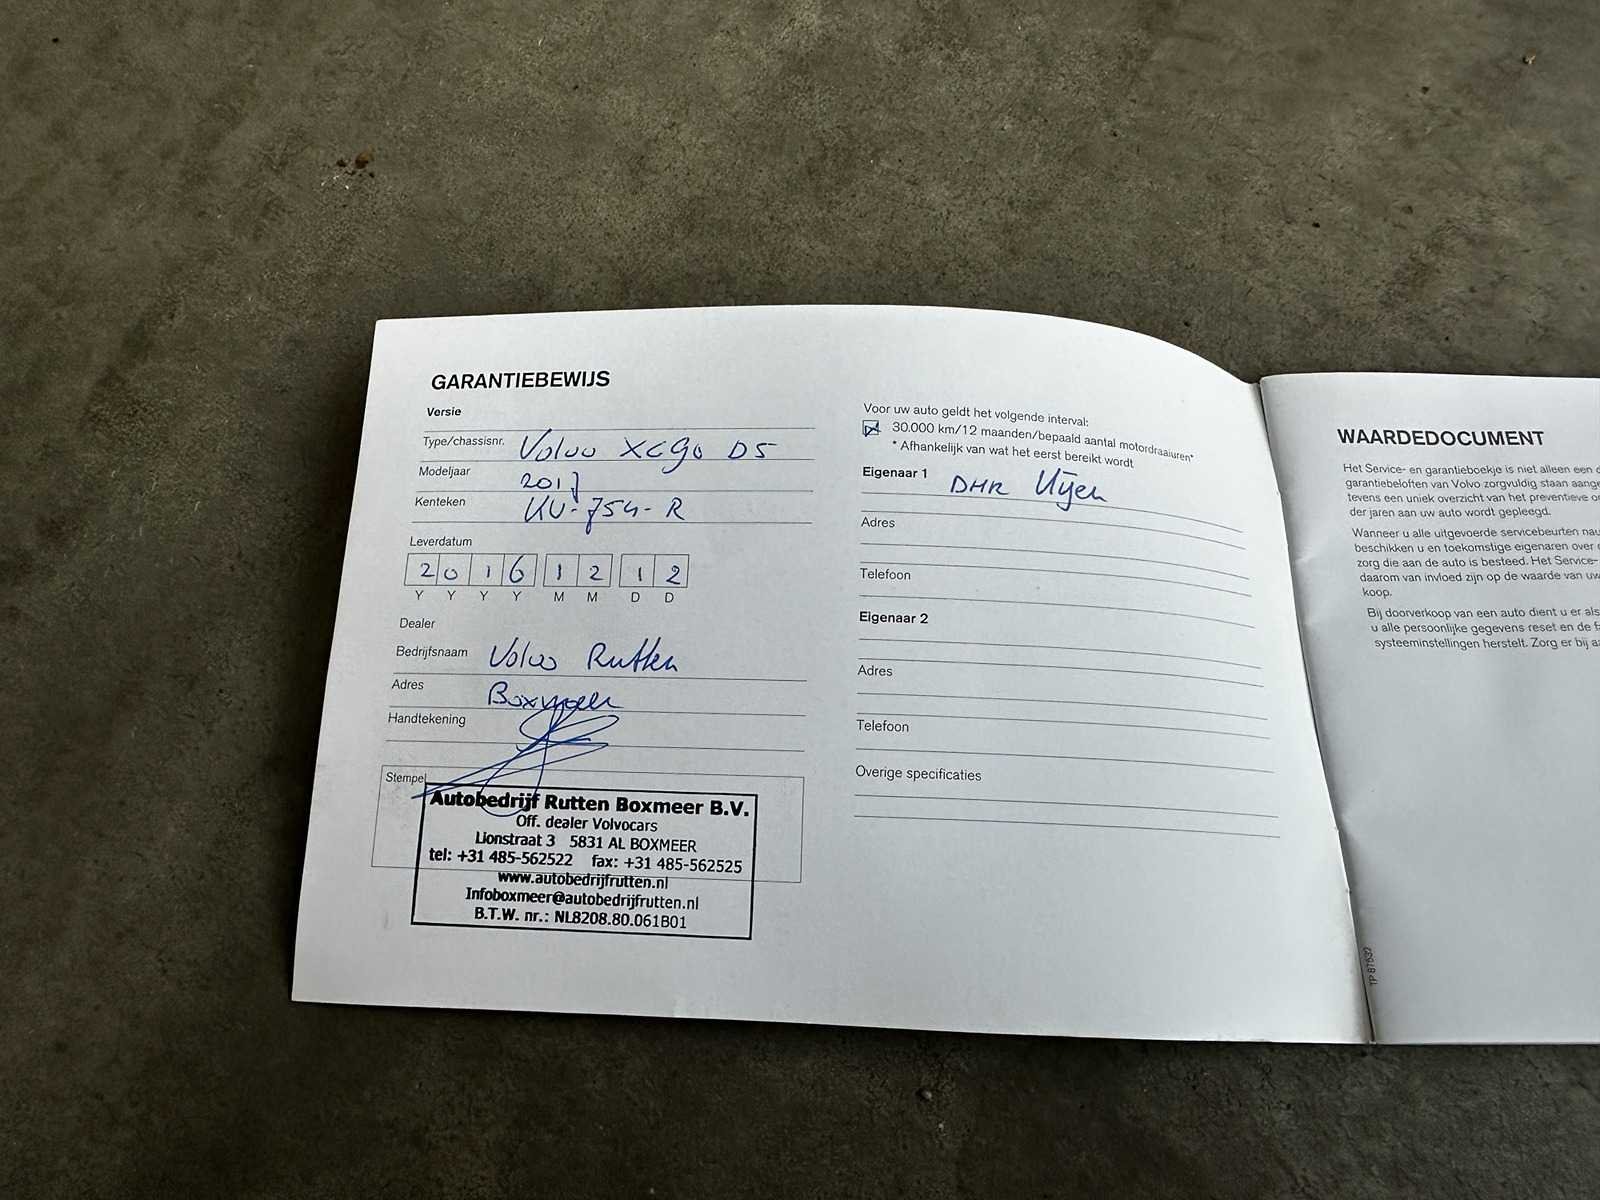 GARANTIEBEWIJS
Versie
Type/chassisnr. Volvo XC90 D5
Modeljaar 2017
Kenteken KV-754-R
Leverdatum
2 0 1 6 1 2 1 2
Y Y Y Y M M D D
Dealer
Bedrijfsnaam Volvo Rutten
Adres Boxmeer
Handtekening
Stempel
Autobedrijf Rutten Boxmeer B.V.
Off. dealer Volvocars
Lionstraat 3 5831 AL BOXMEER
tel: +31 485-562522 fax: +31 485-562525
www.autobedrijfrutten.nl
Infoboxmeer@autobedrijfrutten.nl
B.T.W. nr.: NL8208.80.061B01
Voor uw auto geldt het volgende interval:
30.000 km/12 maanden/bepaald aantal motordraaiuren*
* Afhankelijk van wat het eerst bereikt wordt
Eigenaar 1 DHR
Adres
Telefoon
Eigenaar 2
Adres
Telefoon
Overige specificaties
WAARDEDOCUMENT
Het Service- en garantieboekje is niet alleen een
garantiebeloften van Volvo zorgvuldig staan
tevens een uniek overzicht van het preventieve
der jaren aan uw auto wordt gepleegd.
Wanneer u alle uitgevoerde servicebeurten
beschikken u en toekomstige eigenaren over
zorg die aan de auto is besteed. Het Service-
daarom van invloed zijn op de waarde van uw
koop.
Bij doorverkoop van een auto dient u er als
u alle persoonlijke gegevens reset en de
systeeminstellingen herstelt. Zorg er bij